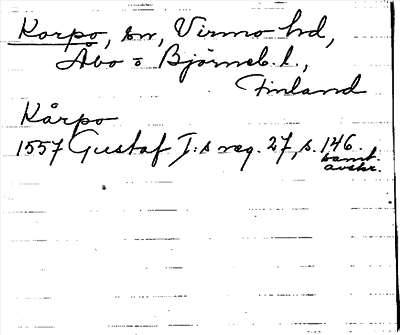 Korpo, sn, Virmo hd,
Åbo o Björneb. l.,
Finland
Kårpo
1557 Gustaf I:s reg. 27, s. 146.
samt.
avskr.